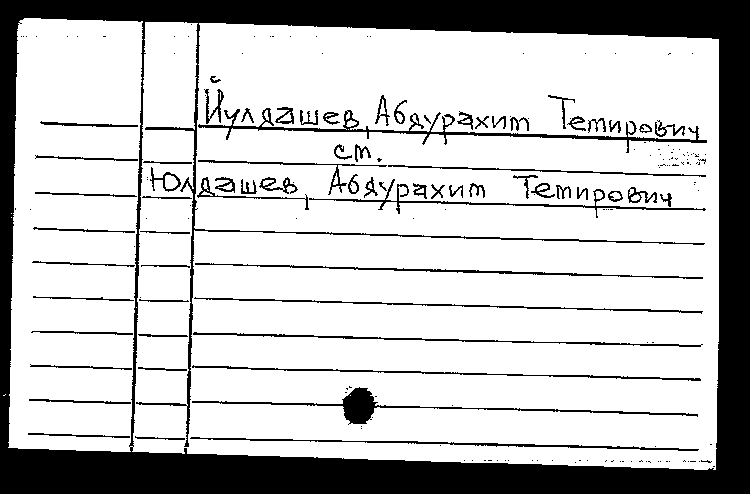 Йулдашев, Абдурахит Темирович
ст.
Юлдашев, Абдурахит Темирович